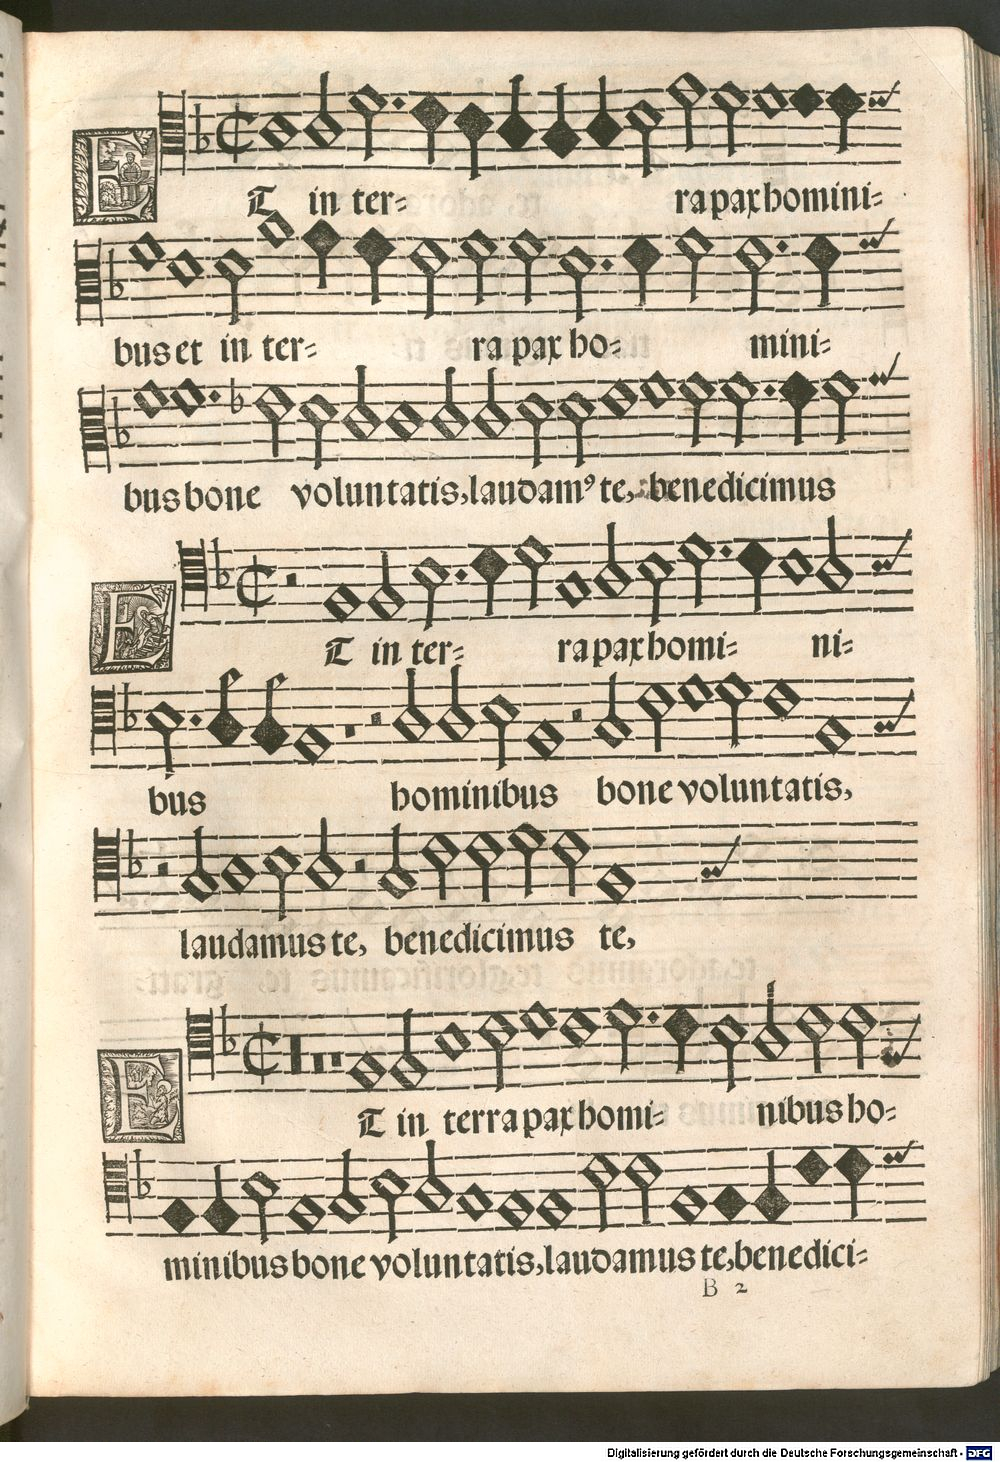 ET in ter- ra pax homini-
bus et in ter- ra pax ho- mini-
bus bone voluntatis, laudamꝰ te, benedicimus
ET in ter- ra pax homi- ni-
bus hominibus bone voluntatis,
laudamus te, benedicimus te,
ET in terra pax homi- nibus ho-
minibus bone voluntatis, laudamus te, benedici-
B 2
Digitalisierung gefördert durch die Deutsche Forschungsgemeinschaft - DFG